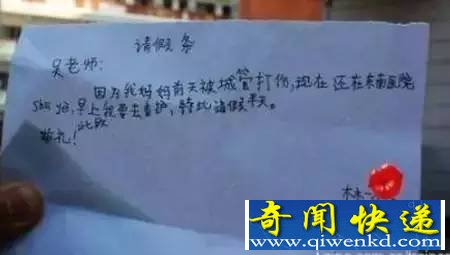 请假条
吴老师:
因为我妈妈前天被城管打伤,现在还在东南医院
早上我要去看护,特此请假半天。
此致
敬礼!
林
奇闻快递
www.qiwenkd.com